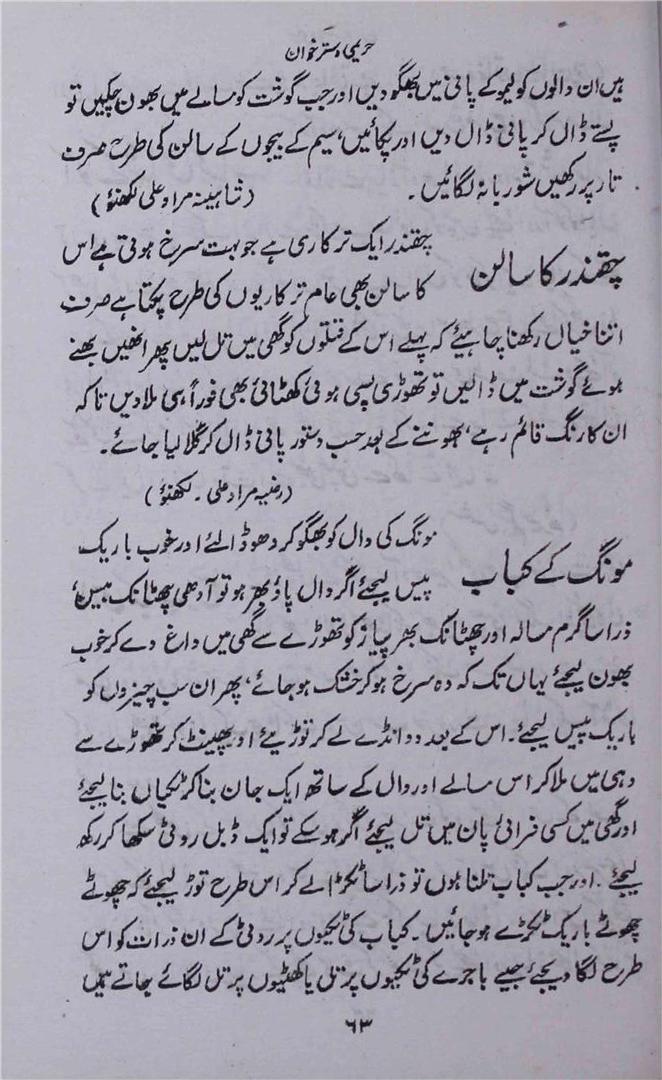 حریمی دسترخوان
ہیں ان دالوں کو لیمو کے پانی میں بھگو دیں اور جب گوشت کو مسالے میں بھون چکیں تو
پستے ڈال کر پانی ڈال دیں اور پکائیں، سیم کے بیجوں کے سالن کی طرح صرف
تار پر رکھیں شوربا نہ لگائیں۔
(شاہینہ مراد علی لکھنؤ)
چقندر کا سالن
چقندر ایک ترکاری ہے جو بہت سرخ ہوتی ہے اس
کا سالن بھی عام ترکاریوں کی طرح پکتا ہے صرف
اتنا خیال رکھنا چاہیئے کہ پہلے اس کے قتلوں کو گھی میں تل لیں پھر انھیں بھنے
ہوئے گوشت میں ڈالیں تو تھوڑی پسی ہوئی کھٹائی بھی فوراً ہی ملا دیں تاکہ
ان کا رنگ قائم رہے، بھوننے کے بعد حسب دستور پانی ڈال کر گلا لیا جائے۔
(رضیہ مراد علی۔ لکھنؤ)
مونگ کے کباب
مونگ کی دال کو بھگو کر دھو ڈالئے اور خوب باریک
پیس لیجئے اگر دال پاؤ بھر ہو تو آدھی چھٹانک بیسن،
ذرا سا گرم مسالہ اور چھٹانک بھر پیاز کو تھوڑے سے گھی میں داغ دے کر خوب
بھون لیجئے یہاں تک کہ وہ سرخ ہو کر خشک ہو جائے، پھر ان سب چیزوں کو
باریک پیس لیجئے۔ اس کے بعد دو انڈے لے کر توڑیئے اور پھینٹ کر تھوڑے سے
دہی میں ملا کر اس مسالے اور دال کے ساتھ ایک جان بنا کر ٹکیاں بنا لیجئے
اور گھی میں کسی فرائی پان میں تل لیجئے اگر ہو سکے تو ایک ڈبل روٹی سکھا کر رکھ
لیجئے۔ اور جب کباب تلنا ہوں تو ذرا سا ٹکڑا لے کر اس طرح توڑ لیجئے کہ چھوٹے
چھوٹے باریک ٹکڑے ہو جائیں۔ کباب کی ٹکیوں پر روٹی کے ان ذرات کو اس
طرح لگا دیجئے جیسے باجرے کی ٹکیوں پر تل یا کھٹیوں پر تل لگائے جاتے ہیں
۶۳